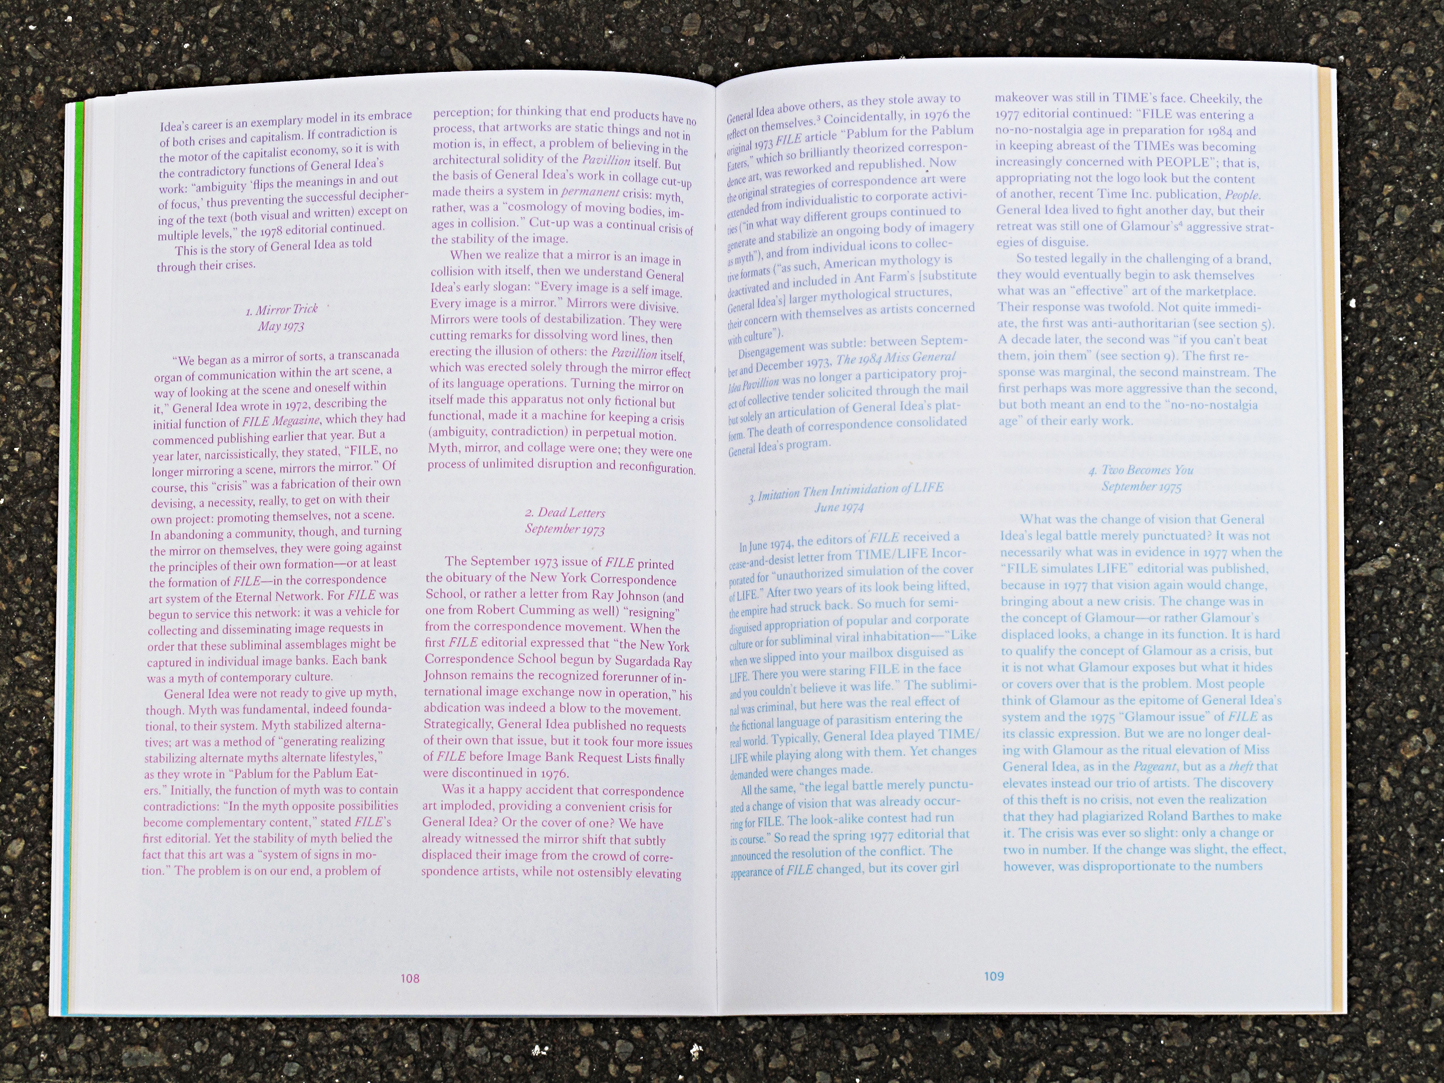 Idea's career is an exemplary model in its embrace
of both crises and capitalism. If contradiction is
the motor of the capitalist economy, so it is with
the contradictory functions of General Idea's
work: “ambiguity ‘flips the meanings in and out
of focus,’ thus preventing the successful decipher-
ing of the text (both visual and written) except on
multiple levels,” the 1978 editorial continued.
This is the story of General Idea as told
through their crises.
1. Mirror Trick
May 1973
“We began as a mirror of sorts, a transcanada
organ of communication within the art scene, a
way of looking at the scene and oneself within
it,” General Idea wrote in 1972, describing the
initial function of FILE Megazine, which they had
commenced publishing earlier that year. But a
year later, narcissistically, they stated, “FILE, no
longer mirroring a scene, mirrors the mirror.” Of
course, this “crisis” was a fabrication of their own
devising, a necessity, really, to get on with their
own project: promoting themselves, not a scene.
In abandoning a community, though, and turning
the mirror on themselves, they were going against
the principles of their own formation—or at least
the formation of FILE—in the correspondence
art system of the Eternal Network. For FILE was
begun to service this network: it was a vehicle for
collecting and disseminating image requests in
order that these subliminal assemblages might be
captured in individual image banks. Each bank
was a myth of contemporary culture.
General Idea were not ready to give up myth,
though. Myth was fundamental, indeed founda-
tional, to their system. Myth stabilized alterna-
tives; art was a method of “generating realizing
stabilizing alternate myths alternate lifestyles,”
as they wrote in “Pablum for the Pablum Eat-
ers.” Initially, the function of myth was to contain
contradictions: “In the myth opposite possibilities
become complementary content,” stated FILE's
first editorial. Yet the stability of myth belied the
fact that this art was a “system of signs in mo-
tion.” The problem is on our end, a problem of
perception; for thinking that end products have no
process, that artworks are static things and not in
motion is, in effect, a problem of believing in the
architectural solidity of the Pavillion itself. But
the basis of General Idea's work in collage cut-up
made theirs a system in permanent crisis: myth,
rather, was a “cosmology of moving bodies, im-
ages in collision.” Cut-up was a continual crisis of
the stability of the image.
When we realize that a mirror is an image in
collision with itself, then we understand General
Idea's early slogan: “Every image is a self image.
Every image is a mirror.” Mirrors were divisive.
Mirrors were tools of destabilization. They were
cutting remarks for dissolving word lines, then
erecting the illusion of others: the Pavillion itself,
which was erected solely through the mirror effect
of its language operations. Turning the mirror on
itself made this apparatus not only fictional but
functional, made it a machine for keeping a crisis
(ambiguity, contradiction) in perpetual motion.
Myth, mirror, and collage were one; they were one
process of unlimited disruption and reconfiguration.
2. Dead Letters
September 1973
The September 1973 issue of FILE printed
the obituary of the New York Correspondence
School, or rather a letter from Ray Johnson (and
one from Robert Cumming as well) “resigning”
from the correspondence movement. When the
first FILE editorial expressed that “the New York
Correspondence School begun by Sugardada Ray
Johnson remains the recognized forerunner of in-
ternational image exchange now in operation,” his
abdication was indeed a blow to the movement.
Strategically, General Idea published no requests
of their own that issue, but it took four more issues
of FILE before Image Bank Request Lists finally
were discontinued in 1976.
Was it a happy accident that correspondence
art imploded, providing a convenient crisis for
General Idea? Or the cover of one? We have
already witnessed the mirror shift that subtly
displaced their image from the crowd of corre-
spondence artists, while not ostensibly elevating
108
General Idea above others, as they stole away to
reflect on themselves.³ Coincidentally, in 1976 the
original 1973 FILE article “Pablum for the Pablum
Eaters,” which so brilliantly theorized correspon-
dence art, was reworked and republished. Now
the original strategies of correspondence art were
extended from individualistic to corporate activi-
ties (“in what way different groups continued to
generate and stabilize an ongoing body of imagery
as myth”), and from individual icons to collec-
tive formats (“as such, American mythology is
deactivated and included in Ant Farm's [substitute
General Idea's] larger mythological structures,
their concern with themselves as artists concerned
with culture”).
Disengagement was subtle: between Septem-
ber and December 1973, The 1984 Miss General
Idea Pavillion was no longer a participatory proj-
ect of collective tender solicited through the mail
but solely an articulation of General Idea's plat-
form. The death of correspondence consolidated
General Idea's program.
3. Imitation Then Intimidation of LIFE
June 1974
In June 1974, the editors of FILE received a
cease-and-desist letter from TIME/LIFE Incor-
porated for “unauthorized simulation of the cover
of LIFE.” After two years of its look being lifted,
the empire had struck back. So much for semi-
disguised appropriation of popular and corporate
culture or for subliminal viral inhabitation—“Like
when we slipped into your mailbox disguised as
LIFE. There you were staring FILE in the face
and you couldn't believe it was life.” The sublimi-
nal was criminal, but here was the real effect of
the fictional language of parasitism entering the
real world. Typically, General Idea played TIME/
LIFE while playing along with them. Yet changes
demanded were changes made.
All the same, “the legal battle merely punctu-
ated a change of vision that was already occur-
ring for FILE. The look-alike contest had run
its course.” So read the spring 1977 editorial that
announced the resolution of the conflict. The
appearance of FILE changed, but its cover girl
makeover was still in TIME's face. Cheekily, the
1977 editorial continued: “FILE was entering a
no-no-nostalgia age in preparation for 1984 and
in keeping abreast of the TIMEs was becoming
increasingly concerned with PEOPLE”; that is,
appropriating not the logo look but the content
of another, recent Time Inc. publication, People.
General Idea lived to fight another day, but their
retreat was still one of Glamour's⁶ aggressive strat-
egies of disguise.
So tested legally in the challenging of a brand,
they would eventually begin to ask themselves
what was an “effective” art of the marketplace.
Their response was twofold. Not quite immedi-
ate, the first was anti-authoritarian (see section 5).
A decade later, the second was “if you can't beat
them, join them” (see section 9). The first re-
sponse was marginal, the second mainstream. The
first perhaps was more aggressive than the second,
but both meant an end to the “no-no-nostalgia
age” of their early work.
4. Two Becomes You
September 1975
What was the change of vision that General
Idea's legal battle merely punctuated? It was not
necessarily what was in evidence in 1977 when the
“FILE simulates LIFE” editorial was published,
because in 1977 that vision again would change,
bringing about a new crisis. The change was in
the concept of Glamour—or rather Glamour's
displaced looks, a change in its function. It is hard
to qualify the concept of Glamour as a crisis, but
it is not what Glamour exposes but what it hides
or covers over that is the problem. Most people
think of Glamour as the epitome of General Idea's
system and the 1975 “Glamour issue” of FILE as
its classic expression. But we are no longer deal-
ing with Glamour as the ritual elevation of Miss
General Idea, as in the Pageant, but as a theft that
elevates instead our trio of artists. The discovery
of this theft is no crisis, not even the realization
that they had plagiarized Roland Barthes to make
it. The crisis was ever so slight: only a change or
two in number. If the change was slight, the effect,
however, was disproportionate to the numbers
109